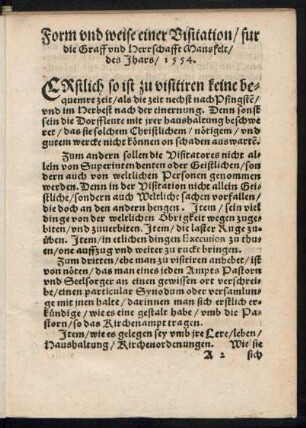 Form vnd weise einer Visitation/ fur
die Graff vnd Herrschafft Mansfelt/
des Jhars/ 1554.
ERstlich so ist zu visitiren keine be-
quemre zeit/ als die zeit nechst nach Pfingstẽ/
vnd im Herbest nach der einernung. Denn sonst
sein die Dorffleute mit jrer haushaltung beschwe
ret/ das sie solchem Christlichem/ nötigem/ vnd
gutem wercke nicht können on schaden auswartẽ.
Zum andern sollen die Visitatores nicht alle
lein von Superintendenten oder Geistlichen/ son
dern auch von weltlichen Personen genommen
werden. Denn in der Visitation nicht allein Gei
stliche/ sondern auch Weltliche sachen vorfallen/
die doch an den andern hengen. Item/ sein viel
dinge von der weltlichen Öbrigkeit wegen zuge-
biten/ vnd zuuerbiten. Item/ die laster Ruge zu-
üben. Item/ etlichen dingen Execution zu thu
en/ one auffzug vnd weiter zu ruck bringen.
Zum dritten/ ehe man zu visitiren anhebet/ ist
von nöten/ das man eines jeden Ampts Pastorn
vnd Seelsorger an einen gewissen ort verschrei
be/ einen particular Synodum oder versamlun-
ge mit jnen halte/ darinnen man sich erstlich er-
kündige/ wie es eine gestalt habe/ vmb die Pa-
storn/ so das Kirchenampt tragen.
Item/ wie es gelegen sey vmb jre Lere/ leben/
Haushaltung/ Kirchenordenungen. Wie sie
A 2 sich